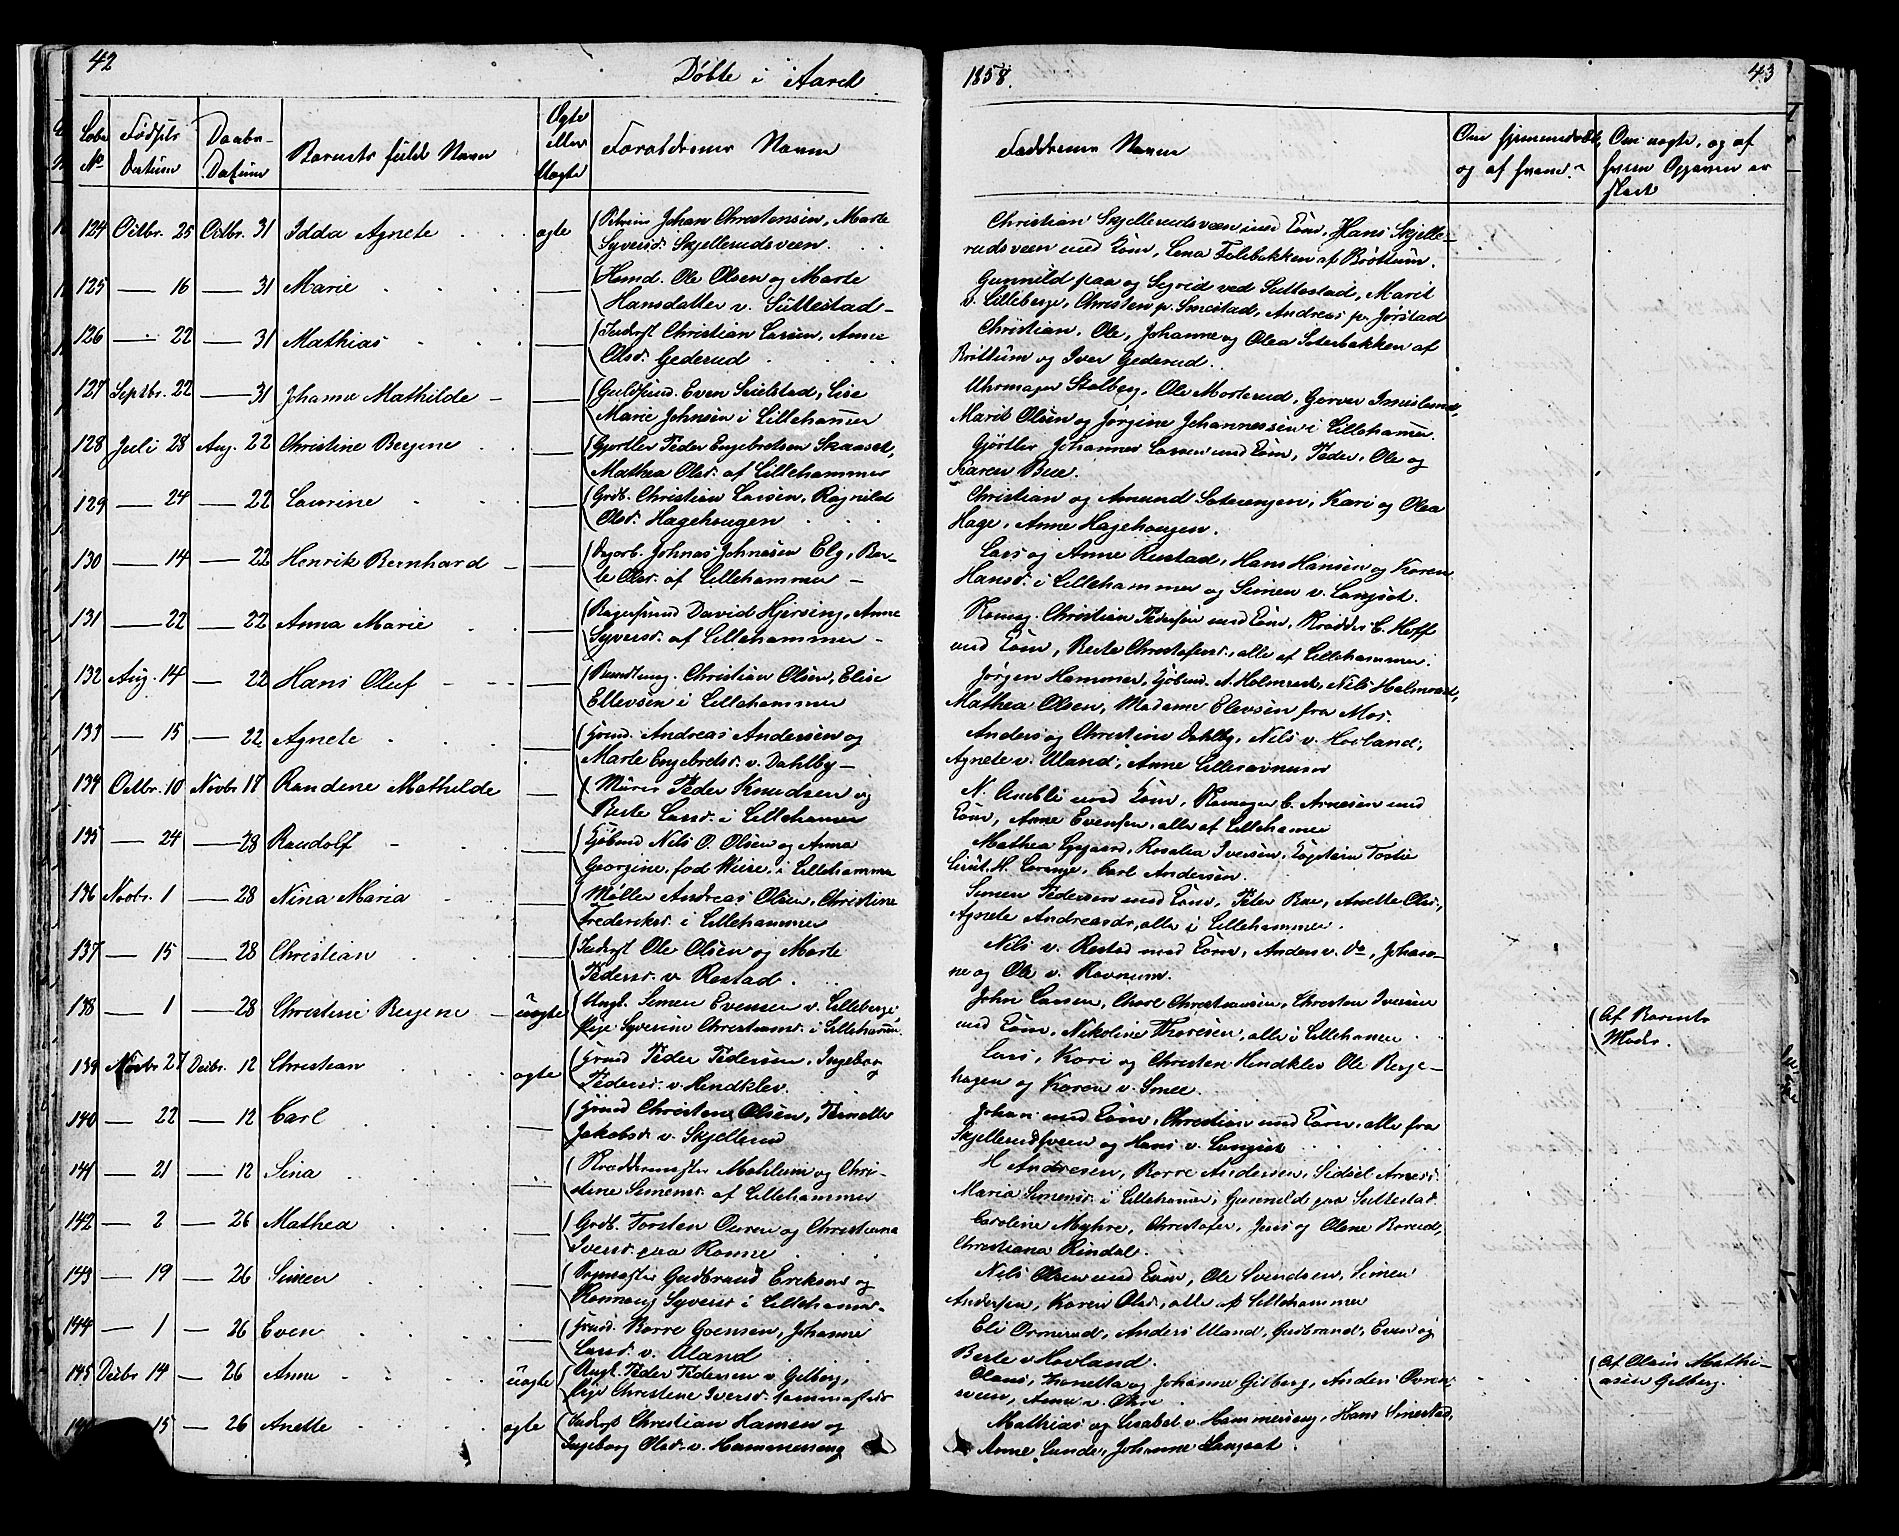 42
Döbte i Aaret
Løbe No
Fødsels Datum
Daabs-Datum
Barnets fulde Navn
Ægte eller Uægte
Forældrenes Navne
124 Octbr. 25 Octbr. 31 Idda Agnete ægte Johan Christensen, Marte
Syversd. Skjellerudsveen.
125 — 16 — 31 Marie — Huusmd. Ole Olsen og Marte
Hansdatter v. Suttestad
126 — 22 — 31 Mathias — Inderst Christian Larsen, Anne
Olsd. Gederud
127 Septbr. 22 — 31 Johanne Mathilde — Guldsmd. Even Sulestad, Lise
Marie Johnsen i Lillehammer
128 Juli 28 Aug. 22 Christine Bergene — Gjørtler Peder Engebretsen Skaaset,
Mathea Olsd. af Lillehammer
129 — 24 — 22 Laurine — Grdb. Christian Larsen, Ragnild
Olsd. Hagehougen
130 — 14 — 22 Henrik Bernhard — Johnas Johnesen Elg, Ber-
te Olsd. af Lillehammer
131 — 22 — 22 Anna Marie — Bagersvend David Hjersing, Anne
Syversd. af Lillehammer
132 Aug. 14 — 22 Hans Oluf — Christian Olsen, Elise
Ellevsen i Lillehammer
133 — 15 — 22 Agnete — Andreas Andersen og
Marte Engebretsd. v. Dahlby
134 Octbr. 10 Novbr 17 Randene Mathilde — Murer Peder Knudsen og
Berte Larsd. i Lillehammer
135 — 24 — 28 Randolf — Kjøbmd Nils O. Olsen og Anna
Georgine, fød Weise, i Lillehammer
136 Novbr. 1 — 28 Nina Maria — Møller Andreas Olsen, Christine
Frederiksd. i Lillehammer
137 — 15 — 28 Christian — Inderst Ole Olsen og Marte
Pedersd. v. Rostad
138 — 1 — 28 Christine Bergene uægte Ungk. Simen Evensen v. Lilleberge
Pige Syverine Christiansd. i Lillehammer
139 Novbr 27 Decbr. 12 Christian ægte Peder Pedersen, Ingeborg
Pedersd. v. Hindklev.
140 — 22 — 12 Carl — Christen Olsen, Pernelle
Jakobsd. v. Skjellerud
141 — 21 — 12 Sina — Mohlum og Chri-
stine Simensd. af Lillehammer
142 — 2 — 26 Mathea — Grdb. Torsten Ouren og Christiana
Iversd. paa Ronne
143 — 19 — 26 Simen — Gudbrand Eriksen og
Ronnaug Syversd. i Lillehammer
144 — 1 — 26 Even — Borre Goensen, Johanne
Larsd. v. Uland
145 Decbr 14 — 26 Anne uægte Ungk. Peder Pedersen v. Gilberg,
Pige Christine Iversd. sammesteds
15 — 26 Anette ægte Inderst Christian Hansen og
Ingeborg Olsd. v. Hammerseng
1858.
43
Faddernes Navne
Om hjemmedøbt, og af hvem.
Om uægte, og af hvem Opgaven er skeet
Christian Skjellerudsveen med Kone, Hans Skjelle-
rudsveen med Kone, Lena Felebakken af Brøttum.
Gunnild paa og Sigrid ved Suttestad, Marit
v. Lilleberge, Christen p. Smestad, Andreas p. Jørstad
Christian, Ole, Johanne og Olea Soterbakken af
Brøttum og Iver Gederud.
Uhrmager Stolberg, Ole Morterud,
Marit Olsen og Jørgine Johannessen i Lillehamer.
Gjørtler Johannes Larsen med Kone, Peder, Ole og
Karen Bue.
Christian og Amund Soterengen, Kari og Olea
Hage, Anne Hagehougen.
Lars og Anne Rustad, Hans Hansen og Karen
Hansd. i Lillehammer og Simen v. Langset.
Christian Pedersen med Kone, C. Hoff
med Kone, Berte Christofersd., alle af Lillehammer.
Jørgen Hammer, Kjøbmd. A. Holmrast, Nils Holmrast,
Mathea Olsen, Madame Elevsen fra Mos.
Anders og Christine Dahlby, Nils v. Hovland,
Agnete v. Uland, Anne
N. Aunbli med Kone, C. Arnesen med
Kone, Anne Evensen, alle af Lillehamer
Mathea Rosalia Iversen,
Carl Andersen.
Simen Pedersen med Kone, Peter Bue, Anette Olsd.,
Agnete Andreasdr, alle i Lillehammer.
Nils v. Rostad med Kone, Anders v. Do, Johan-
ne og Ole v. Rovnum.
John Larsen, Christiansen, Christen Iversen
med Kone, Nikoline Thoresen, alle i Lillehamer
Af Barnets
Moder.
Lars, Kari og Christen Hindklev Ole Berge-
hagen og Karen v. Smee.
Johan med Kone, Christian med Kone, alle fra
Skjellerudsveen og Hans v. Langset
H Andresen, Borre Andersen, Sidsel Arnesd.
Maria Simensd. i Lillehamer, Gunnild paa Suttestad
Caroline Myhre, Christofer, Jens og Olene
Christiana Rindal.
Nils Olsen med Kone, Ole Svendsen, Simen
Andersen, Karen Olsd., alle af Lillehammer
Eli Ormrud, Anders Uland, Gudbrand, Even og
Berte v Hovland.
Olaus, og Johanne Gilberg, Anders Ovren-
sveen, Anne v.
Af Olaus Mathi-
asen Gilberg.
Mathias og Lisabet v. Hammerseng, Hans Smestad,
Anne Lunde, Johanne Langset.